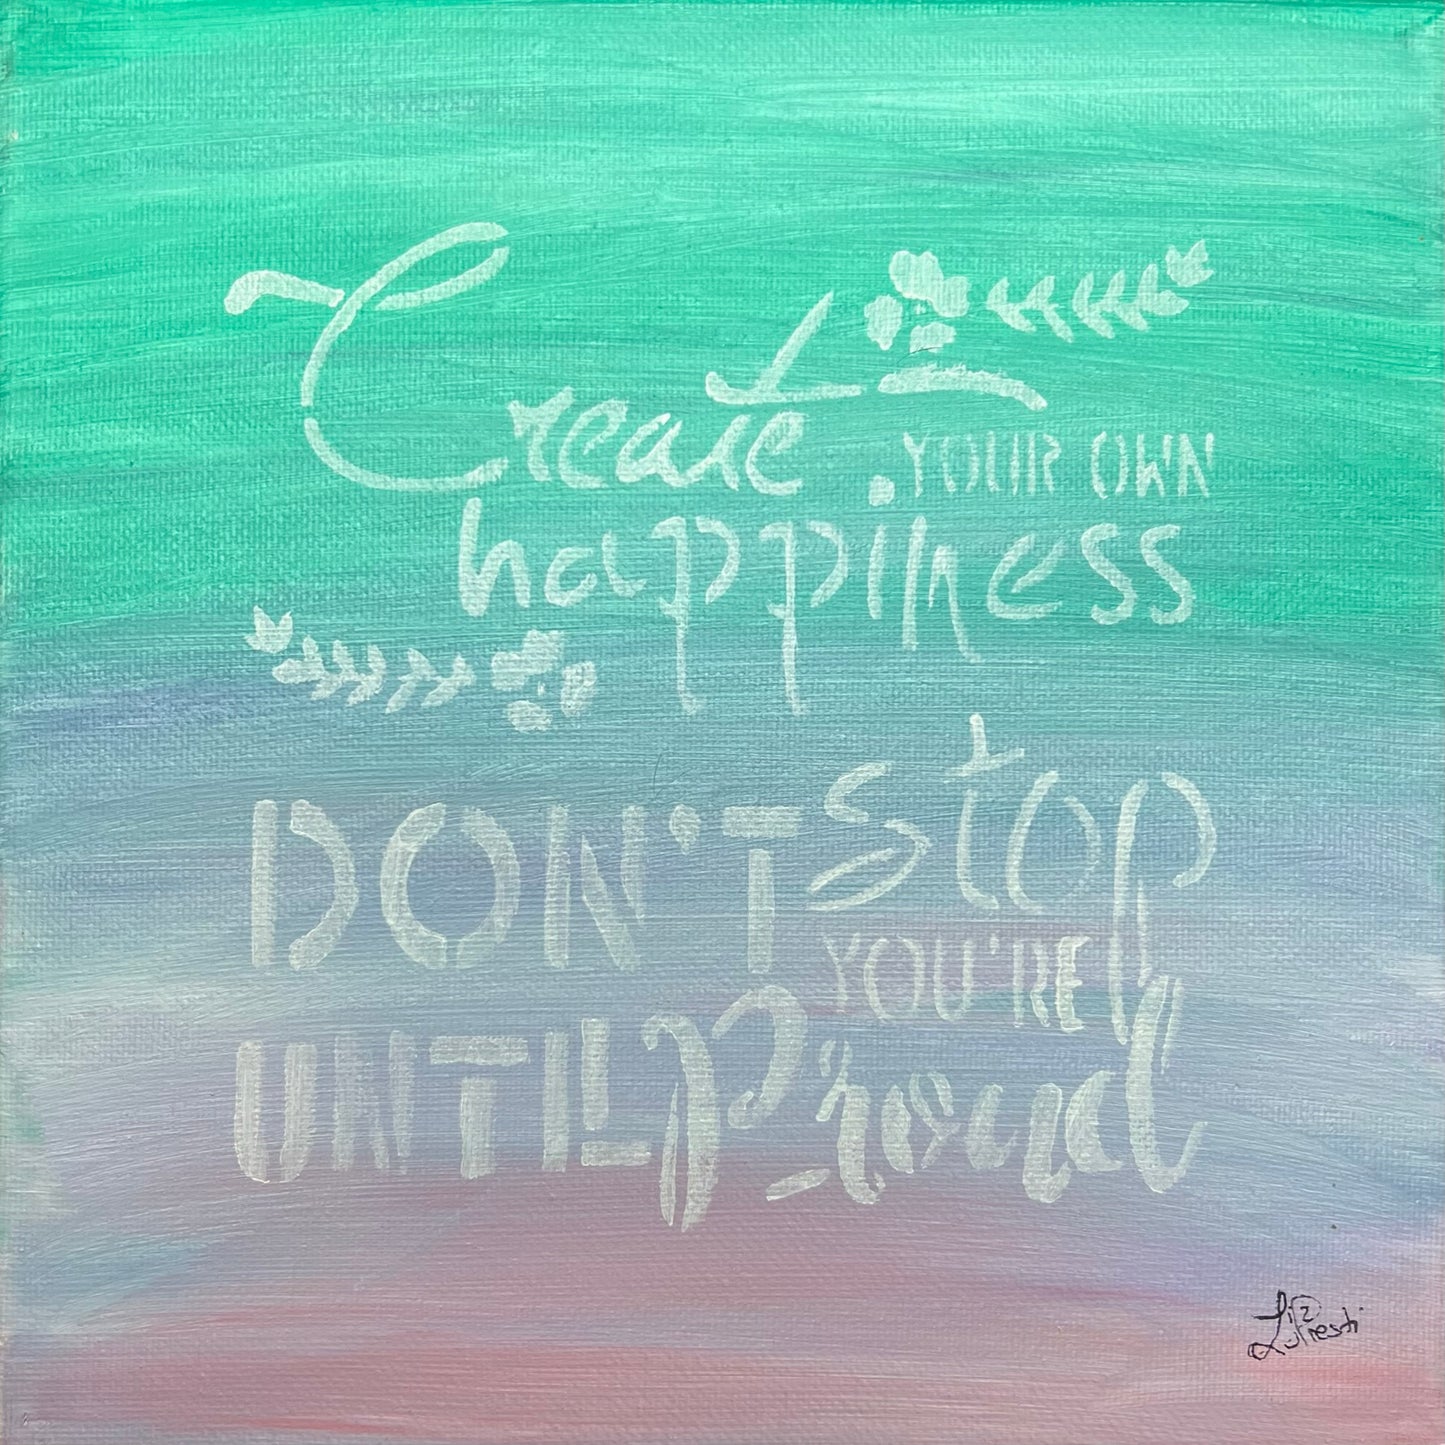 Create YOUR OWN
happiness
DON'T stop
YOU'RE
UNTIL Proud